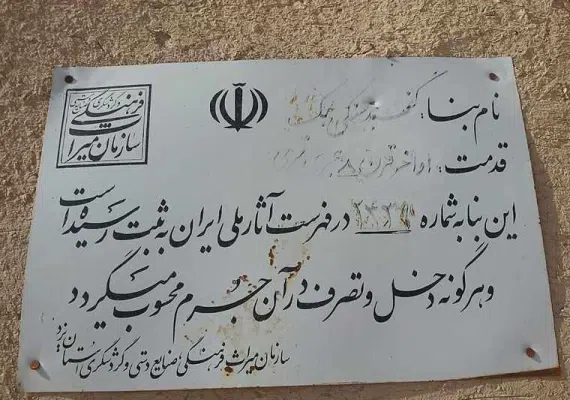 سازمان میراث فرهنگی
نام بنا:
قدمت: اواخر قرن ۸
این بنا به شماره در فهرست آثار ملی ایران به ثبت رسیده است
و هرگونه دخل و تصرف در آن جرم محسوب میگردد
سازمان میراث فرهنگی، صنایع دستی و گردشگری استان یزد